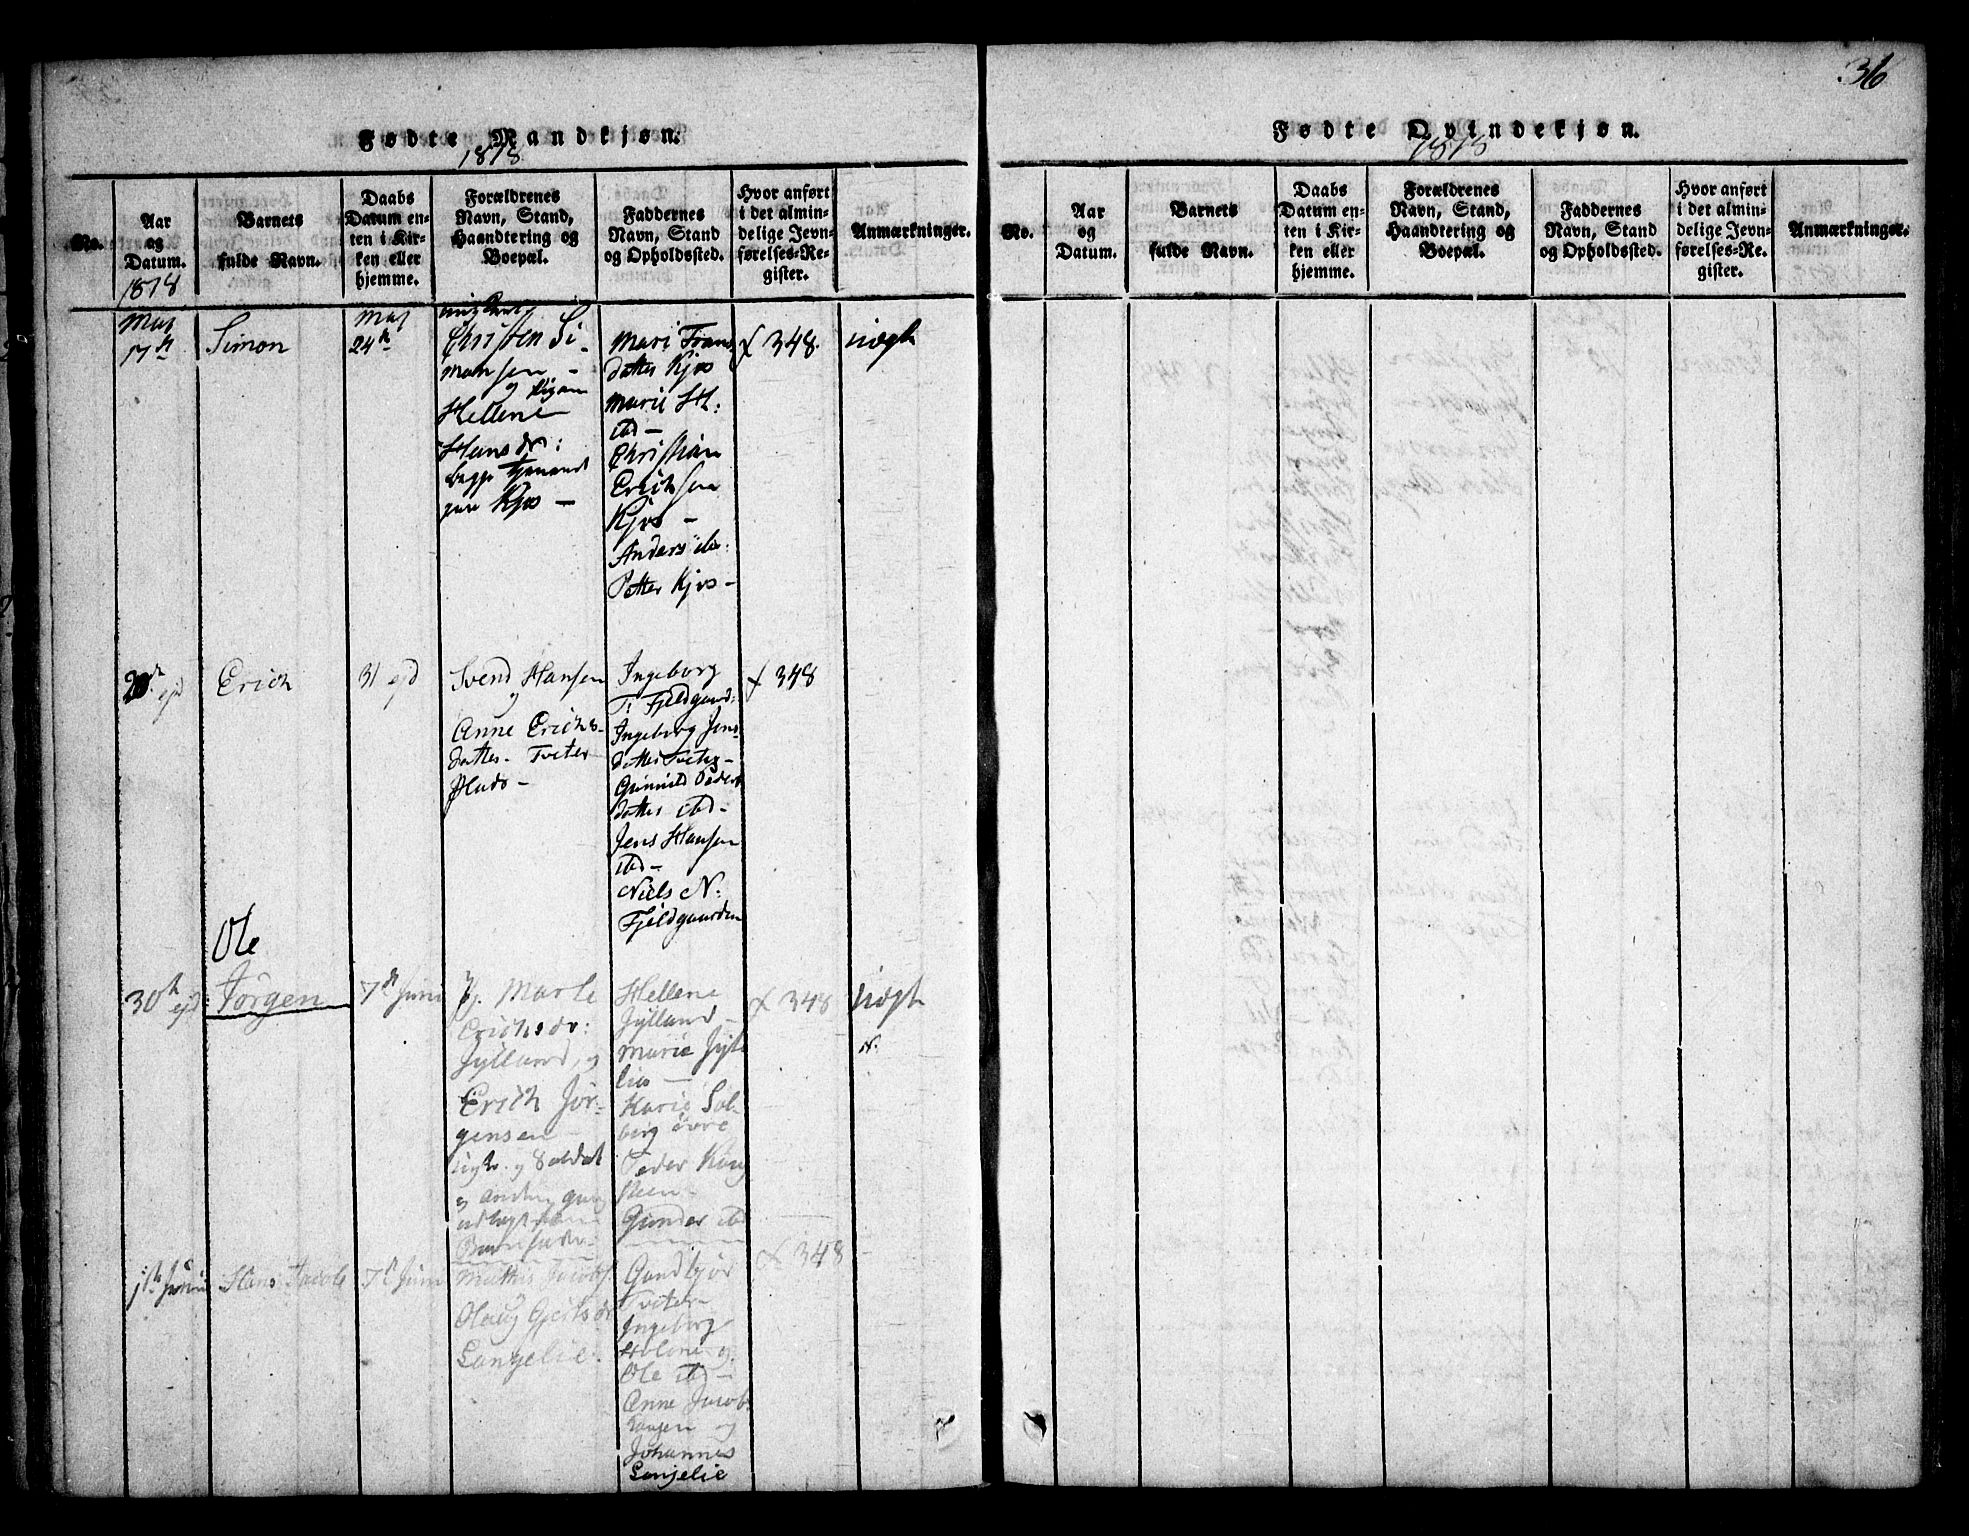 36
Fødte Mandkjøn.
1818
No.
Aar og Datum.
Barnets fulde Navn.
Daabs Datum enten i Kirken eller hjemme.
Forældrenes Navn, Stand, Haandtering og Boepæl.
Faddernes Navn, Stand og Opholdssted.
Hvor anført i det almindelige Jevnførelses-Register.
Anmærkninger.
1818
Maj
17de
Simon
Maj
24de
Christen Si-
monsen -
og Pigen
Hellene
Hansdr:
begge tjenende
Kjos -
Mari Frans-
datter Kjos
Marie H:
ibd -
Christian
Erichsen
Kjos -
Anders ibd:
Petter Kjos -
348.
uægte
ejd
Erich
31 ejd
Svend Hansen
og
Anne Erichs-
datter. Tveter
Plads -
Ingeborg
T: Fjeldgaard:
Ingeborg Jens-
datter Tveter -
Gunnild Peders-
datter ibd -
Jens Hansen
ibd -
Niels N:
Fjeldgaarden
348
30th ejd:
Ole
Jørgen
7de Juni
P. Marte
Erichsdr:
Jylland, og
Erich Jør-
gensen
ugk. og Soldat
og anden gang
udlagt som
Barnfader.
Hellene
Jylland -
Marie
lia -
Karie Sol-
berg øvre
Peder
steen -
Gunder ibd
348
uægte
N.
1ste Juni
Hans Jacob
7de Juni
Mathis Jacobs.
og
Olaug Gjertsdr
Langelie.
Gundbjør
Tveter -
Ingeborg
Holene og
Ole ibd -
Anne Jacobs
Haugen og
Johannes
Langelie
348
Fødte Qvindekjøn.
1818
No.
Aar og Datum.
Barnets fulde Navn.
Daabs Datum enten i Kirken eller hjemme.
Forældrenes Navn, Stand, Haandtering og Boepæl.
Faddernes Navn, Stand og Opholdssted.
Hvor anført i det almindelige Jevnførelses-Register.
Anmærkninger.